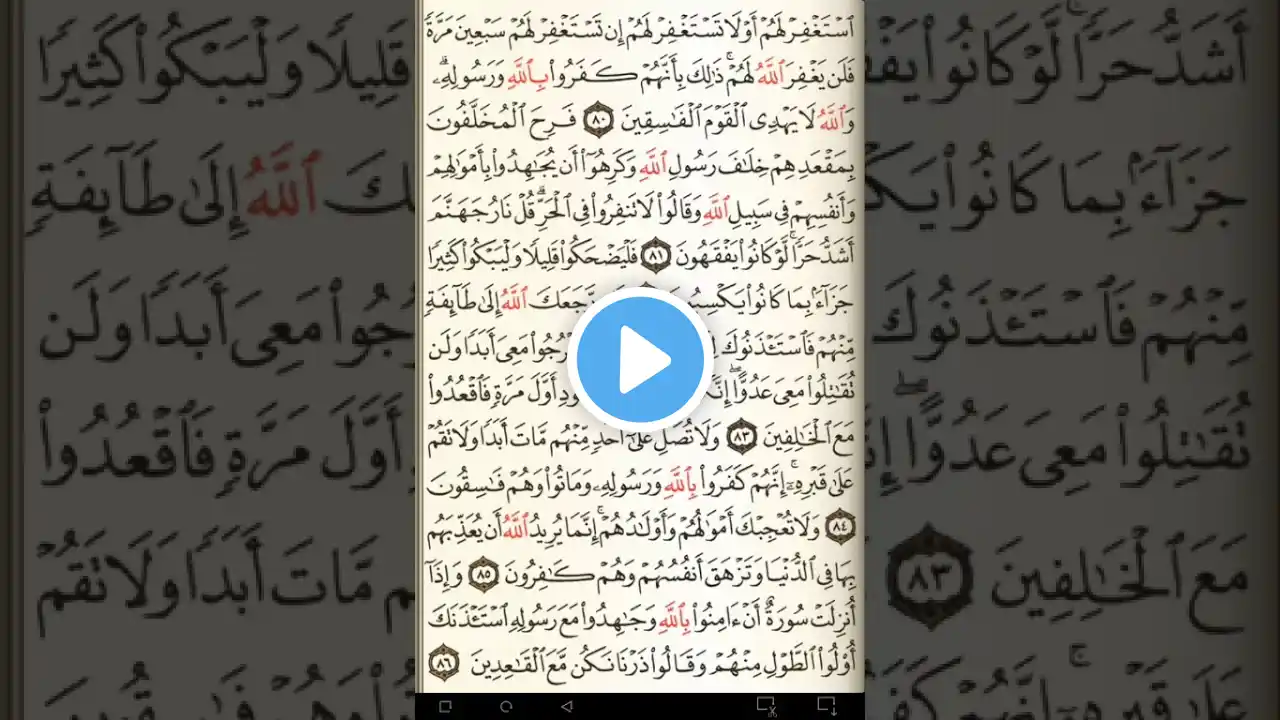 ٱسْتَغْفِرْ لَهُمْ أَوْ لَا تَسْتَغْفِرْ لَهُمْ إِن تَسْتَغْفِرْ لَهُمْ سَبْعِينَ مَرَّةً
فَلَن يَغْفِرَ ٱللَّهُ لَهُمْ ۚ ذَٰلِكَ بِأَنَّهُمْ كَفَرُوا۟ بِٱللَّهِ وَرَسُولِهِۦ ۗ
وَٱللَّهُ لَا يَهْدِى ٱلْقَوْمَ ٱلْفَـٰسِقِينَ ٨٠ فَرِحَ ٱلْمُخَلَّفُونَ
بِمَقْعَدِهِمْ خِلَـٰفَ رَسُولِ ٱللَّهِ وَكَرِهُوٓا۟ أَن يُجَـٰهِدُوا۟ بِأَمْوَٰلِهِمْ
وَأَنفُسِهِمْ فِى سَبِيلِ ٱللَّهِ وَقَالُوا۟ لَا تَنفِرُوا۟ فِى ٱلْحَرِّ ۗ قُلْ نَارُ جَهَنَّمَ
أَشَدُّ حَرًّا ۚ لَّوْ كَانُوا۟ يَفْقَهُونَ ٨١ فَلْيَضْحَكُوا۟ قَلِيلًا وَلْيَبْكُوا۟ كَثِيرًا
جَزَآءًۢ بِمَا كَانُوا۟ يَكْسِبُونَ رَّجَعَكَ ٱللَّهُ إِلَىٰ طَآئِفَةٍ
مِّنْهُمْ فَٱسْتَـْٔذَنُوكَ رُجُوا۟ مَعِىَ أَبَدًا وَلَن
تُقَـٰتِلُوا۟ مَعِىَ عَدُوًّا ۖ إِنَّ ودِ أَوَّلَ مَرَّةٍ فَٱقْعُدُوا۟
مَعَ ٱلْخَـٰلِفِينَ ٨٣ وَلَا تُصَلِّ عَلَىٰٓ أَحَدٍ مِّنْهُم مَّاتَ أَبَدًا وَلَا تَقُمْ
عَلَىٰ قَبْرِهِۦٓ ۖ إِنَّهُمْ كَفَرُوا۟ بِٱللَّهِ وَرَسُولِهِۦ وَمَاتُوا۟ وَهُمْ فَـٰسِقُونَ
٨٤ وَلَا تُعْجِبْكَ أَمْوَٰلُهُمْ وَأَوْلَـٰدُهُمْ ۚ إِنَّمَا يُرِيدُ ٱللَّهُ أَن يُعَذِّبَهُم
بِهَا فِى ٱلدُّنْيَا وَتَزْهَقَ أَنفُسُهُمْ وَهُمْ كَـٰفِرُونَ ٨٥ وَإِذَآ
أُنزِلَتْ سُورَةٌ أَنْ ءَامِنُوا۟ بِٱللَّهِ وَجَـٰهِدُوا۟ مَعَ رَسُولِهِ ٱسْتَـْٔذَنَكَ
أُو۟لُوا۟ ٱلطَّوْلِ مِنْهُمْ وَقَالُوا۟ ذَرْنَا نَكُن مَّعَ ٱلْقَـٰعِدِينَ ٨٦